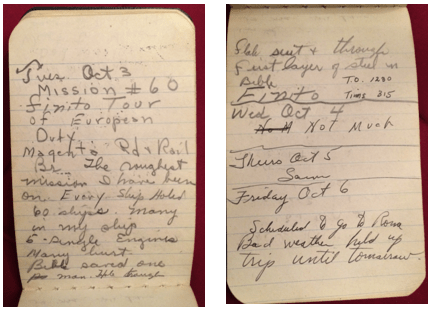 Tues Oct 3
Mission # 60
Finito Tour
of European
Duty
Magenta Rd & Rail
Br. The roughest
mission I have been
on. Every Ship Holed
60 ships. Many
in my ship
5 - Single Engines
Many hurt.
Bible saved one
man. through
flak suit & through
first layer of steel in
Bible T.O. 1230
Finito Time 315
Wed Oct 4
Not Much
Thurs Oct 5
Same
Friday Oct 6
Scheduled to go to Rome
Bad weather held up
trip until tomorrow.